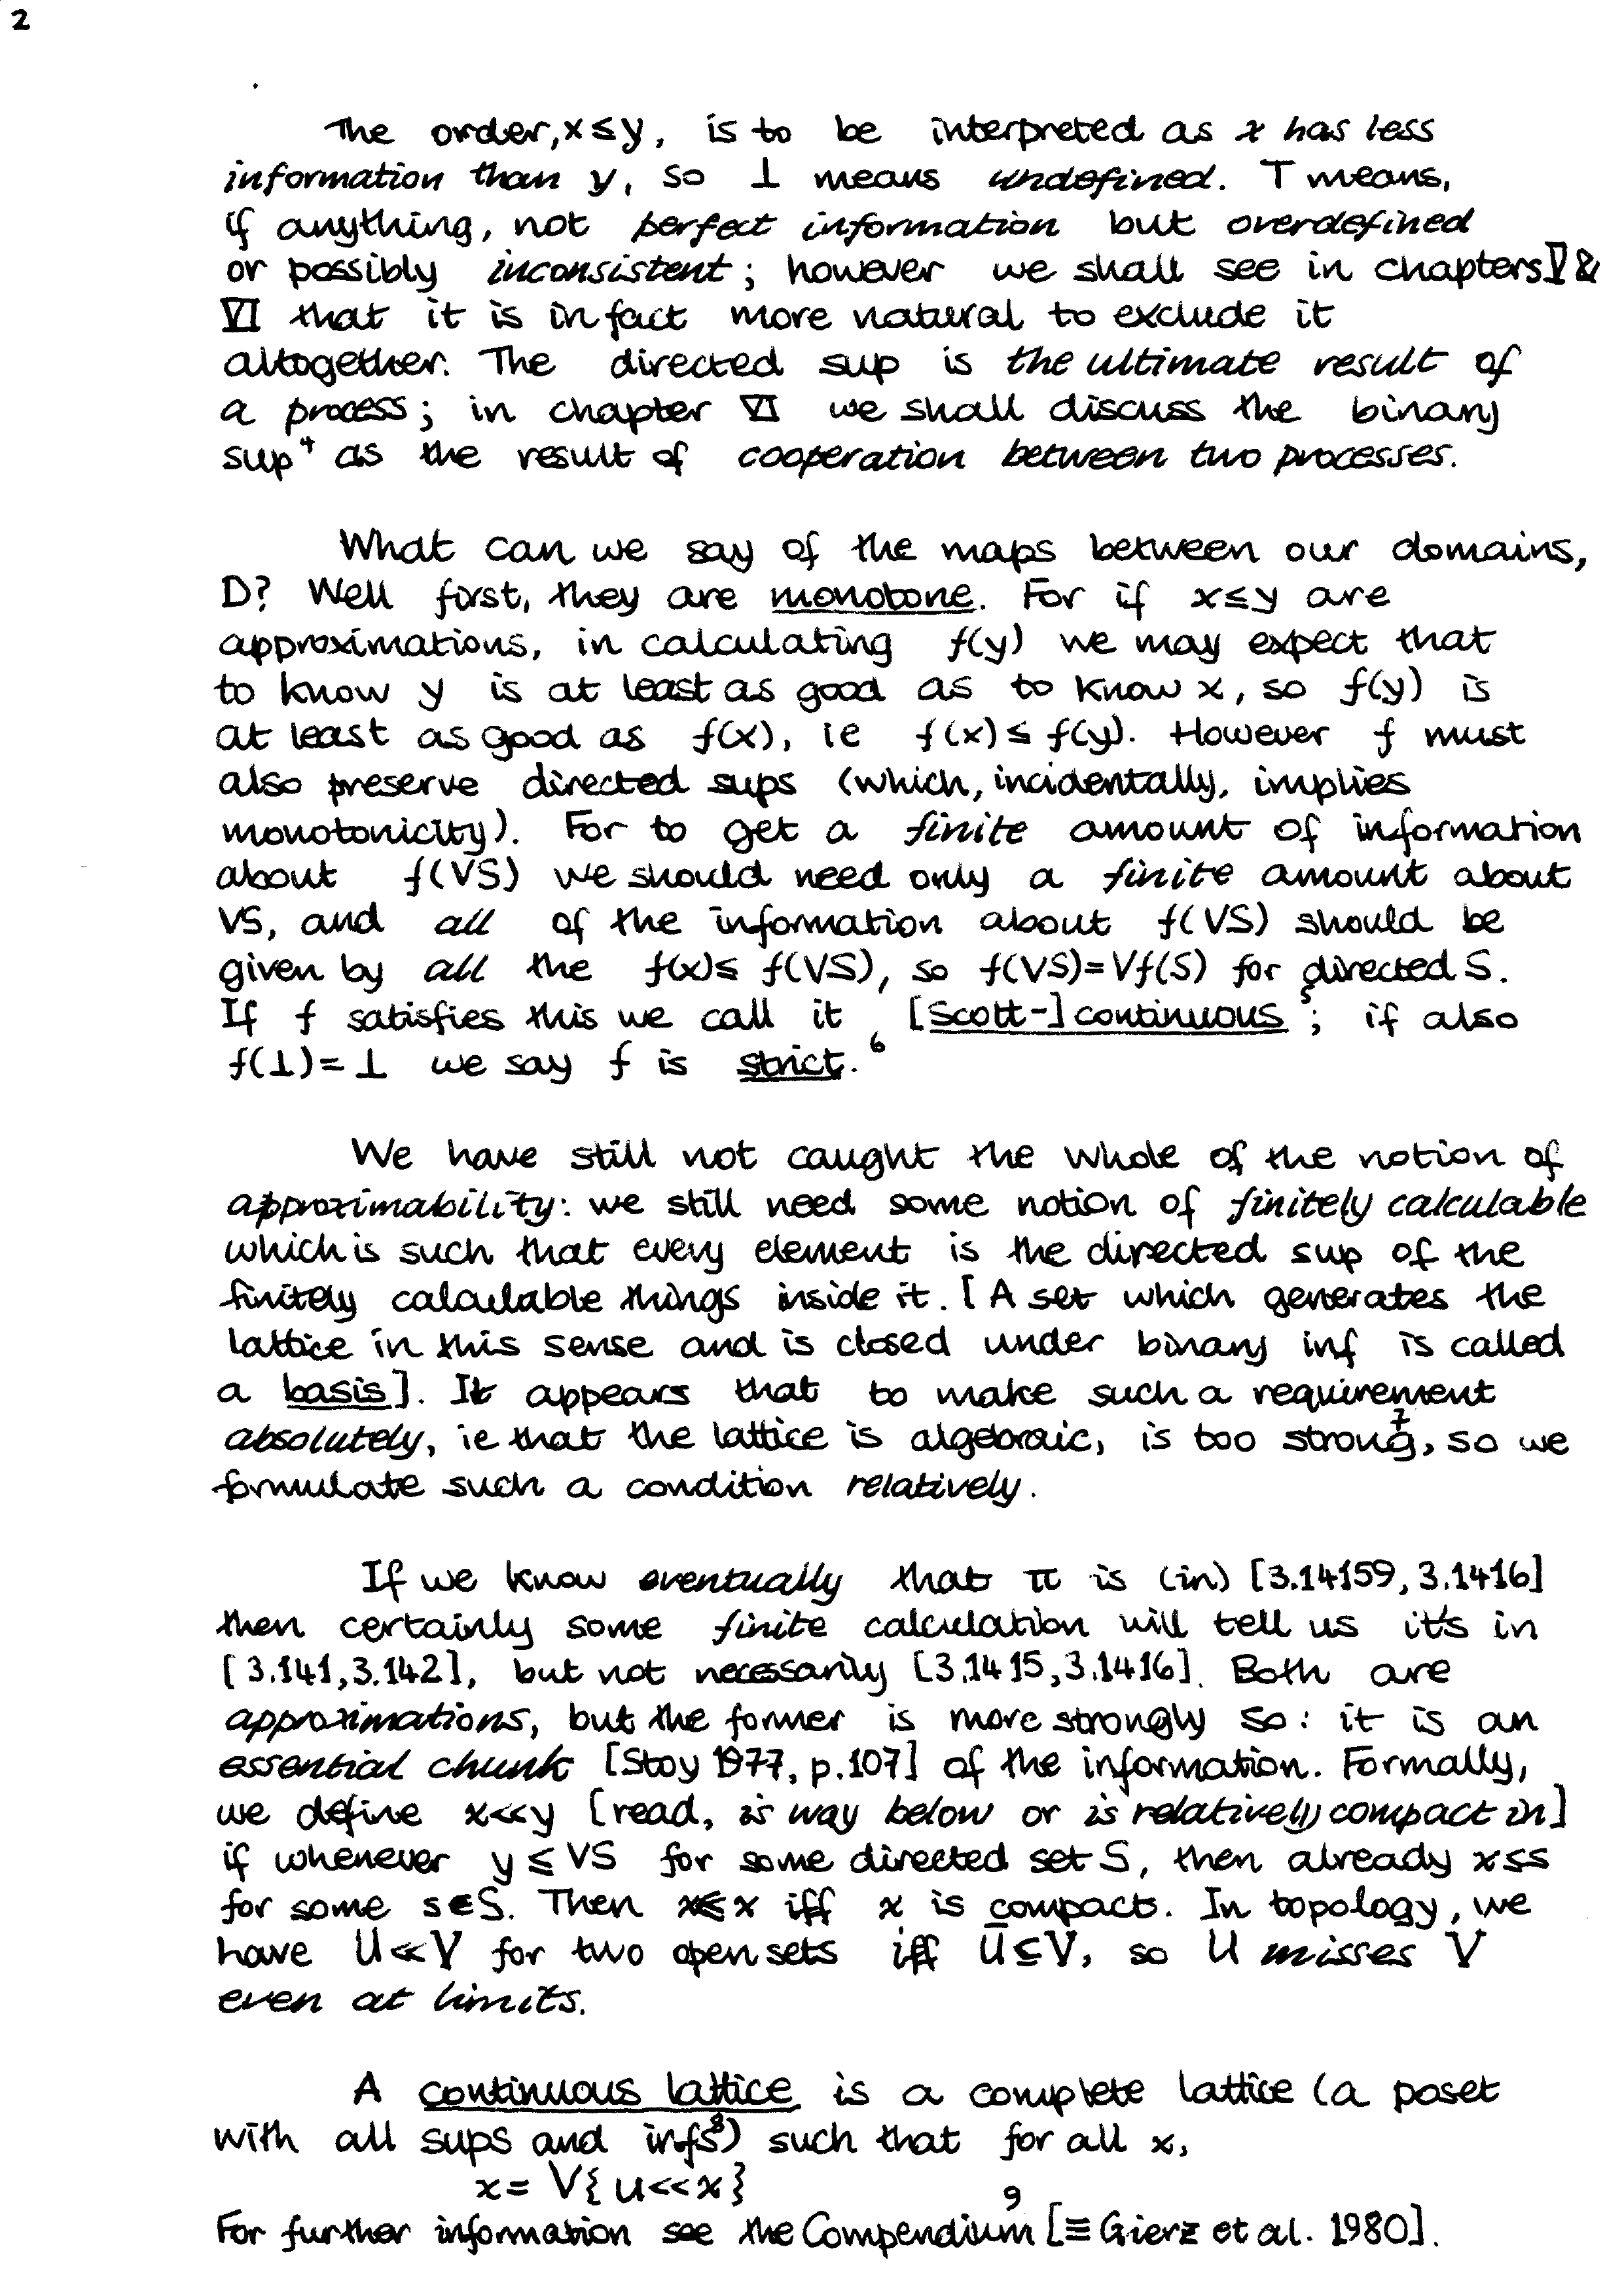 2
The order, x≤y, is to be interpreted as x has less
information than y, so ⊥ means undefined. ⊤ means,
if anything, not perfect information but overdefined
or possibly inconsistent; however we shall see in chapters V &
VI that it is in fact more natural to exclude it
altogether. The directed sup is the ultimate result of
a process; in chapter VI we shall discuss the binary
sup⁴ as the result of cooperation between two processes.
What can we say of the maps between our domains,
D? Well first, they are monotone. For if x≤y are
approximations, in calculating f(y) we may expect that
to know y is at least as good as to know x, so f(y) is
at least as good as f(x), ie f(x)≤f(y). However f must
also preserve directed sups (which, incidentally, implies
monotonicity). For to get a finite amount of information
about f(VS) we should need only a finite amount about
VS, and all of the information about f(VS) should be
given by all the f(x)≤ f(VS), so f(VS)=Vf(S) for directed S.
If f satisfies this we call it [Scott-]continuous⁵; if also
f(⊥)=⊥ we say f is strict.⁶
We have still not caught the whole of the notion of
approximability: we still need some notion of finitely calculable
which is such that every element is the directed sup of the
finitely calculable things inside it. [A set which generates the
lattice in this sense and is closed under binary inf is called
a basis]. It appears that to make such a requirement
absolutely, ie that the lattice is algebraic, is too strong⁷, so we
formulate such a condition relatively.
If we know eventually that π is (in) [3.14159, 3.1416]
then certainly some finite calculation will tell us it's in
[3.141, 3.142], but not necessarily [3.1415, 3.1416]. Both are
approximations, but the former is more strongly so: it is an
essential chunk [Stoy 1977, p.107] of the information. Formally,
we define x≪y [read, is way below or is relatively compact in]
if whenever y≤VS for some directed set S, then already x≤s
for some s∈S. Then x≪x iff x is compact. In topology, we
have U≪V for two open sets iff U̅⊆V, so U misses V
even at limits.
A continuous lattice is a complete lattice (a poset
with all sups and infs⁸) such that for all x,
x = V{u≪x}
For further information see the Compendium⁹ [≡ Gierz et al. 1980].